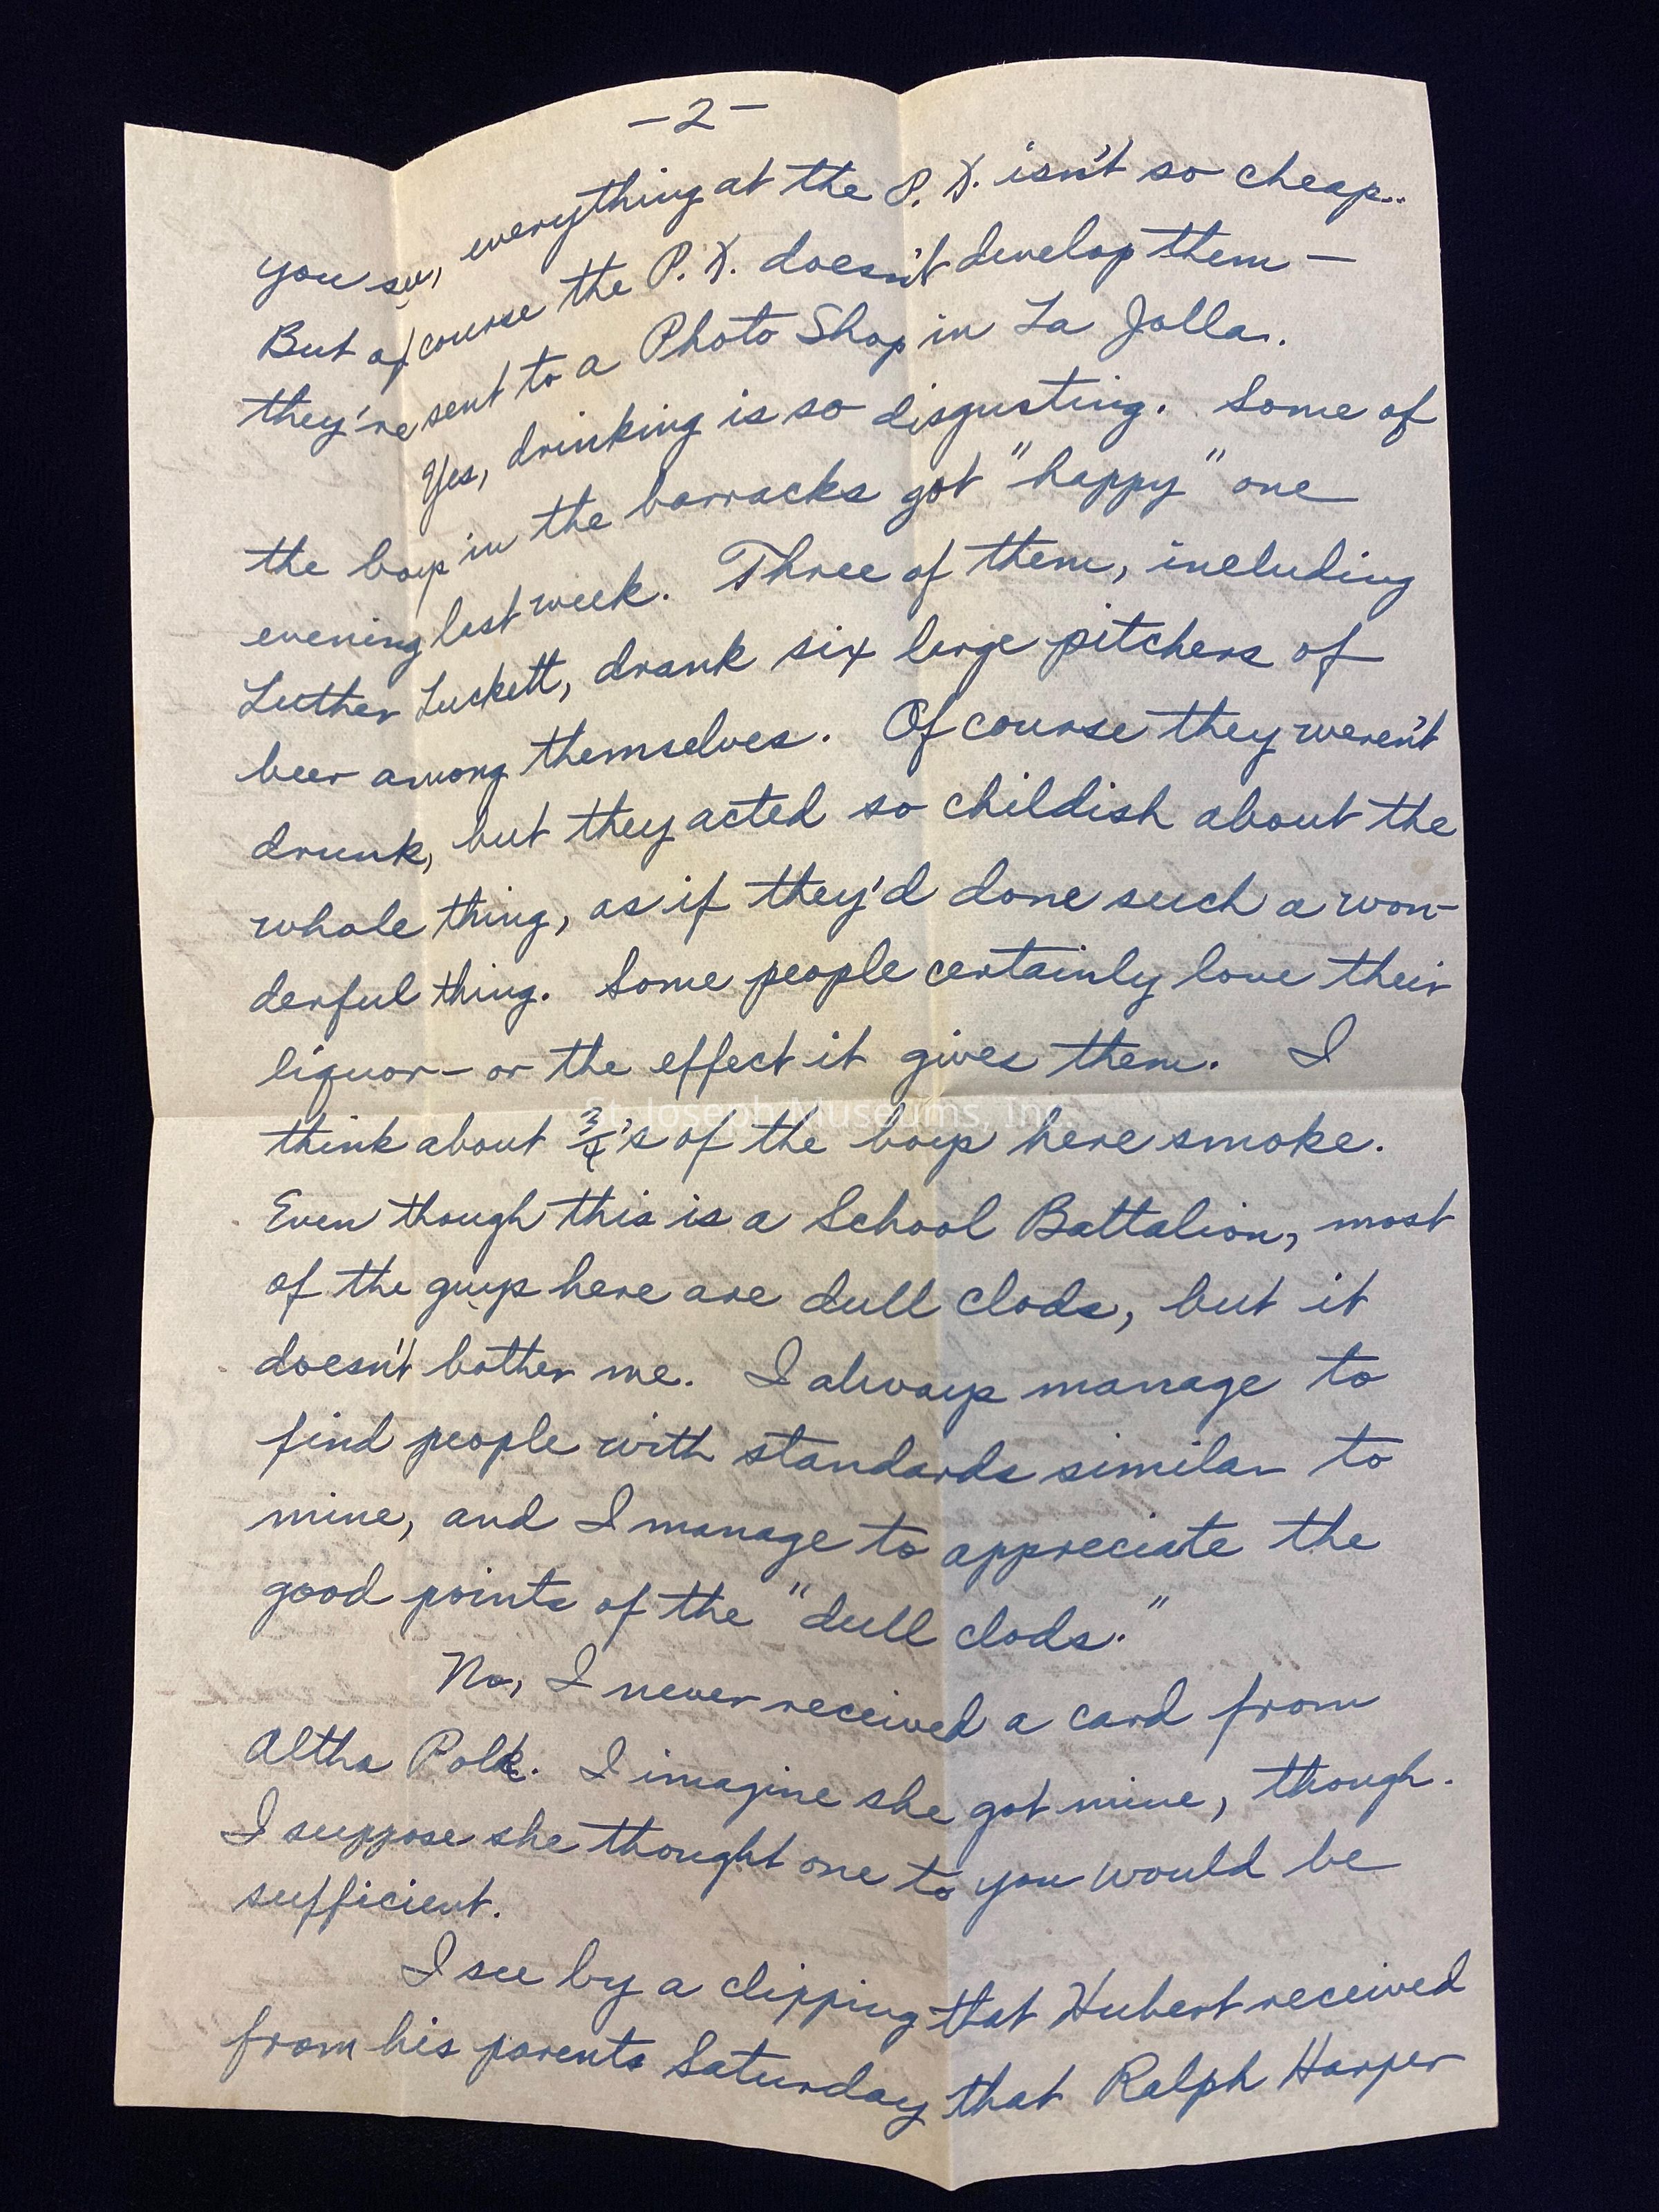 -2-
you see, everything at the P. X. isn't so cheap..
But of course the P. X. doesn't develop them —
they're sent to a Photo Shop in La Jolla.
Yes, drinking is so disgusting. Some of
the boys in the barracks got "happy" one
evening last week. Three of them, including
Luther Luckett, drank six large pitchers of
beer among themselves. Of course they weren't
drunk, but they acted so childish about the
whole thing, as if they'd done such a won-
derful thing. Some people certainly love their
liquor - or the effect it gives them. I
St. Joseph Museums, Inc.
think about 3/4's of the boys here smoke.
Even though this is a School Battalion, most
of the guys here are dull clods, but it
doesn't bother me. I always manage to
find people with standards similar to
mine, and I manage to appreciate the
good points of the "dull clods."
No, I never received a card from
Altha Polk. I imagine she got mine, though.
I suppose she thought one to you would be
sufficient.
I see by a clipping that Hubert received
from his parents Saturday that Ralph Harper